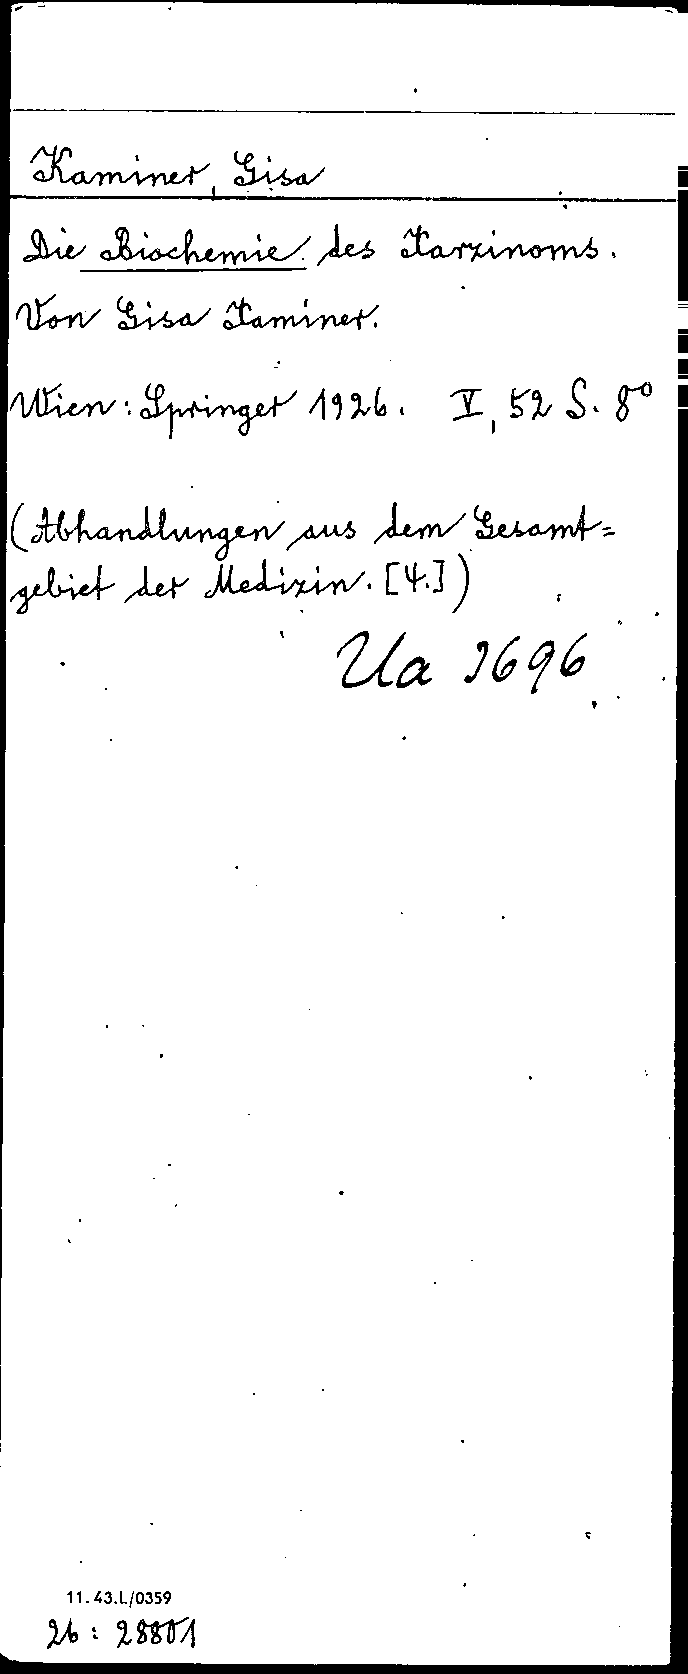 Kaminer, Gisa
Die Biochemie des Karzinoms.
Von Gisa Kaminer.
Wien: Springer 1926. V, 52 S. 8°
(Abhandlungen aus dem Gesamt=
gebiet der Medizin. [4.])
Ua 9696
11.43.L/0359
26: 28801